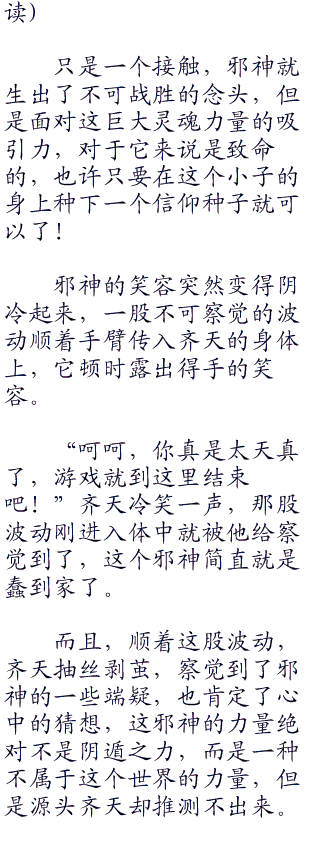 读）
只是一个接触，邪神就
生出了不可战胜的念头，但
是面对这巨大灵魂力量的吸
引力，对于它来说是致命
的，也许只要在这个小子的
身上种下一个信仰种子就可
以了！
邪神的笑容突然变得阴
冷起来，一股不可察觉的波
动顺着手臂传入齐天的身体
上，它顿时露出得手的笑
容。
“呵呵，你真是太天真
了，游戏就到这里结束
吧！”齐天冷笑一声，那股
波动刚进入体中就被他给察
觉到了，这个邪神简直就是
蠢到家了。
而且，顺着这股波动，
齐天抽丝剥茧，察觉到了邪
神的一些端疑，也肯定了心
中的猜想，这邪神的力量绝
对不是阴遁之力，而是一种
不属于这个世界的力量，但
是源头齐天却推测不出来。